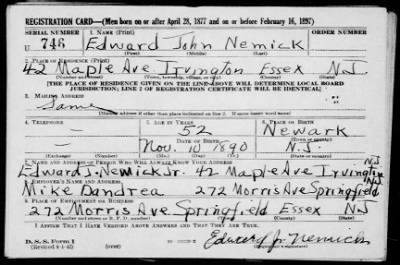 REGISTRATION CARD—(Men born on or after April 28, 1877 and on or before February 16, 1897)
SERIAL NUMBER 1. NAME (Print) ORDER NUMBER
U 746 Edward John Nemick
(First) (Middle) (Last)
2. PLACE OF RESIDENCE (Print)
42 Maple Ave Irvington Essex N.J.
(Number and street) (Town, township, village, or city) (County) (State)
[THE PLACE OF RESIDENCE GIVEN ON THE LINE ABOVE WILL DETERMINE LOCAL BOARD
JURISDICTION; LINE 2 OF REGISTRATION CERTIFICATE WILL BE IDENTICAL]
3. MAILING ADDRESS
Same
[Mailing address if other than place indicated on line 2. If same insert word same]
4. TELEPHONE 5. AGE IN YEARS 6. PLACE OF BIRTH
— 52 Newark
DATE OF BIRTH (Town or county)
— Nov. 10 1890 N.J.
(Exchange) (Number) (Mo.) (Day) (Yr.) (State or country)
7. NAME AND ADDRESS OF PERSON WHO WILL ALWAYS KNOW YOUR ADDRESS
Edward J. Nemick Jr. 42 Maple Ave Irvington N.J.
8. EMPLOYER'S NAME AND ADDRESS
Mike Dandrea 272 Morris Ave Springfield N.J.
9. PLACE OF EMPLOYMENT OR BUSINESS
272 Morris Ave. Springfield Essex N.J.
(Number and street or R. F. D. number) (Town) (County) (State)
I AFFIRM THAT I HAVE VERIFIED ABOVE ANSWERS AND THAT THEY ARE TRUE.
D. S. S. Form 1
(Revised 4-1-42) Edward J. Nemick